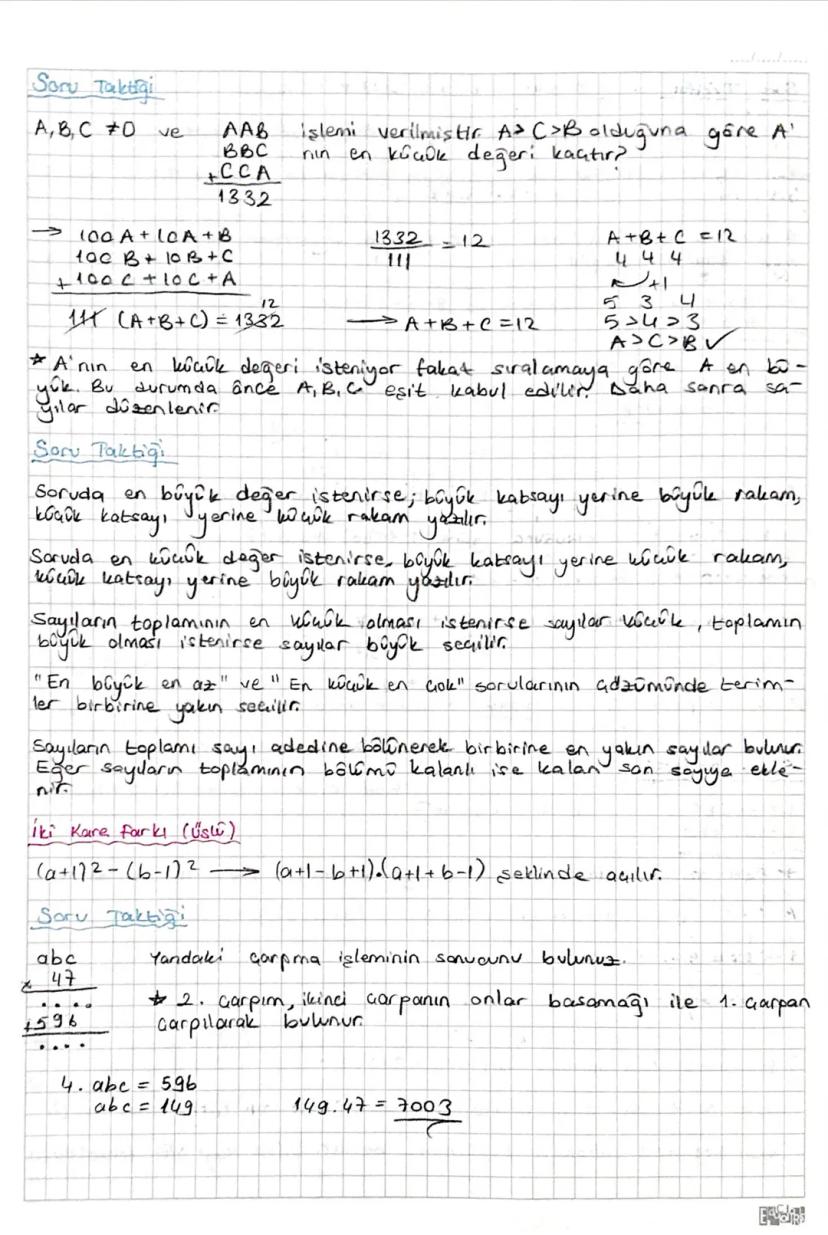 Soru Taktiği
A, B, C ≠ 0 ve AAB işlemi verilmiştir. A > C > B olduğuna göre A'
BBC nın en küçük değeri kaçtır?
+CCA
1332
→ 100A + 10A + B
100B + 10B + C
+ 100C + 10C + A
111 (A+B+C) = 1332 12
1332/111 = 12
→ A+B+C=12
A+B+C = 12
4 4 4
+1
5 3 4
5>4>3
A>C>B ✓
* A'nın en küçük değeri isteniyor fakat sıralamaya göre A en bü-
yük. Bu durumda önce A, B, C eşit kabul edilir. Daha sonra sa-
yılar düzenlenir.
Soru Taktiği
Soruda en büyük değer istenirse; büyük katsayı yerine büyük rakam,
küçük katsayı yerine küçük rakam yazılır.
Soruda en küçük değer istenirse, büyük katsayı yerine küçük rakam,
küçük katsayı yerine büyük rakam yazılır.
Sayıların toplamının en küçük olması istenirse sayılar küçük, toplamın
büyük olması istenirse sayılar büyük seçilir.
"En büyük en az" ve "En küçük en çok" sorularının çözümünde terim-
ler birbirine yakın seçilir.
Sayıların toplamı sayı adedine bölünerek birbirine en yakın sayılar bulunur.
Eğer sayıların toplamının bölümü kalanlı ise kalan son sayıya ekle-
nir.
İki Kare Farkı (Üslü)
(a+1)2 - (b-1)2 → (a+1-b+1).(a+1+b-1) şeklinde açılır.
Soru Taktiği
abc Yandaki çarpma işleminin sonucunu bulunuz.
x 47
.... * 2. çarpım, ikinci çarpanın onlar basamağı ile 1. çarpan
+596 çarpılarak bulunur.
....
4. abc = 596
abc = 149 149.47 = 7003